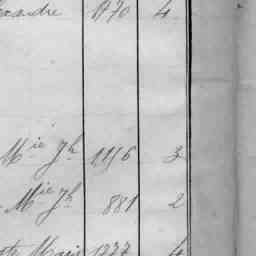 xandre 1770 4
M^ie J^h 1156 3
M^ie J^h 881 2
Marie 1777 4